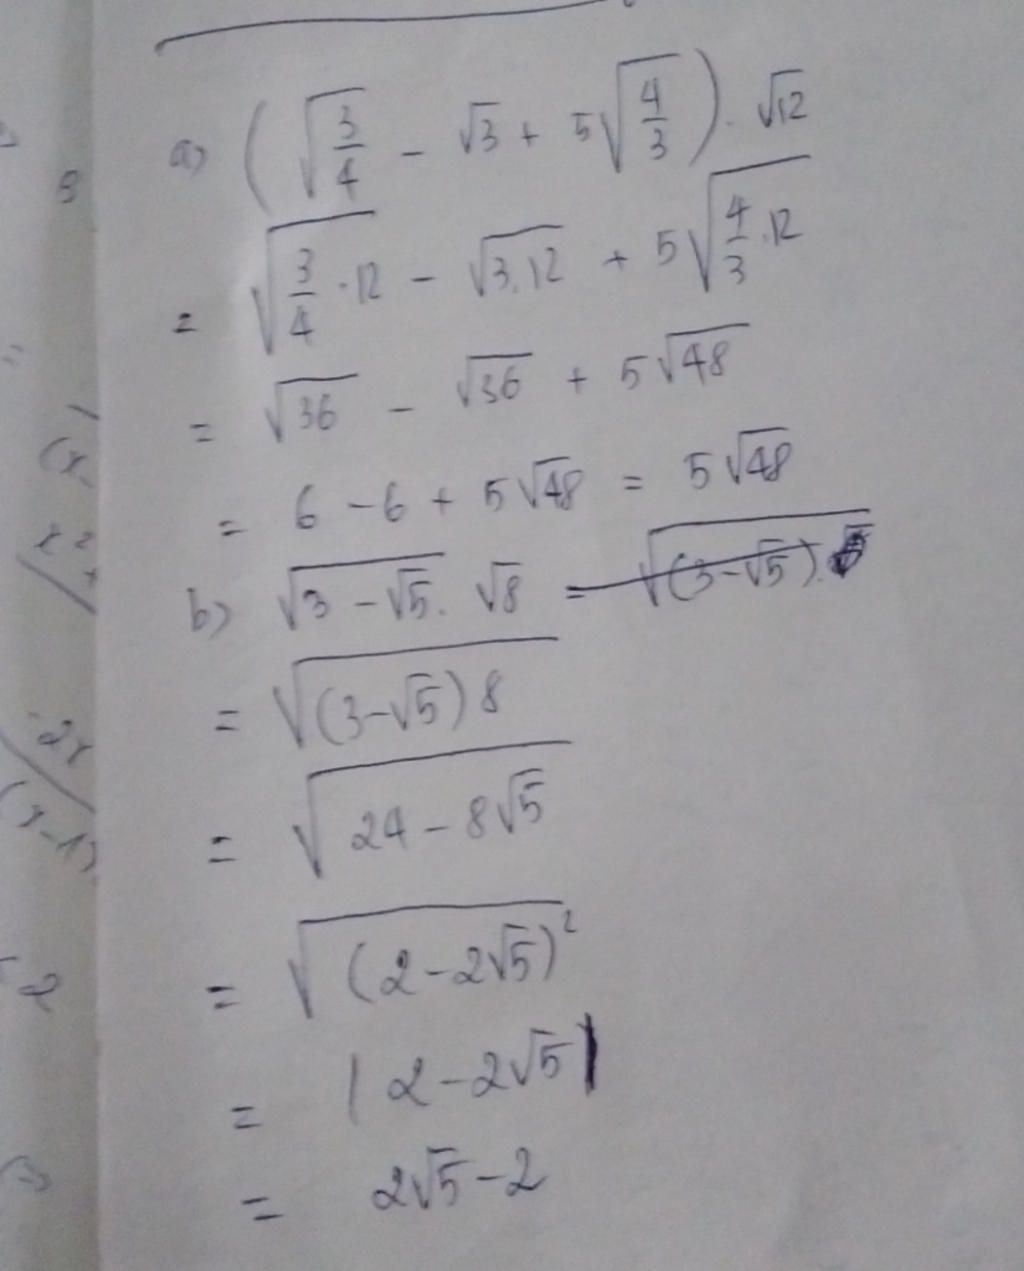 a) (√(3/4) - √3 + 5√(4/3)) . √12
= √(3/4 . 12) - √(3.12) + 5√(4/3 . 12)
= √36 - √36 + 5√48
= 6 - 6 + 5√48 = 5√48
b) √(3 - √5) . √8 = √((3 - √5).
= √((3 - √5) 8)
= √(24 - 8√5)
= √((2 - 2√5)²)
= |2 - 2√5|
= 2√5 - 2